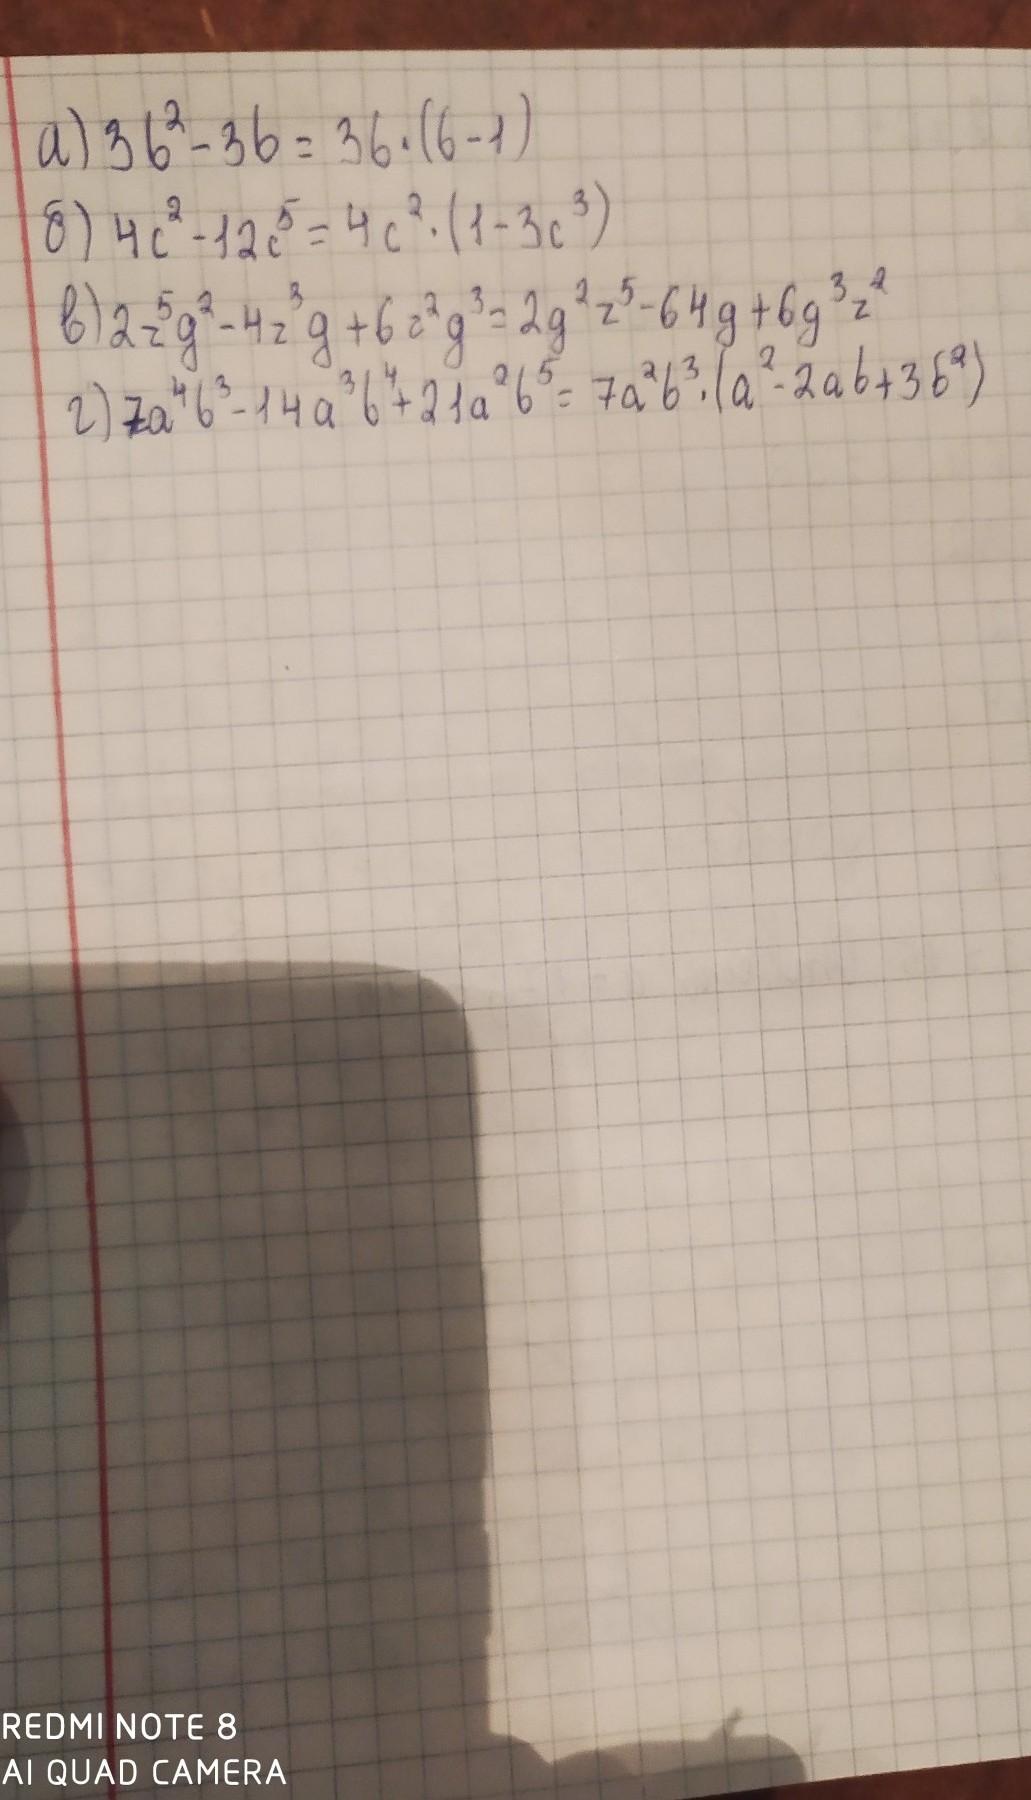 а) 3b² - 3b = 3b·(b-1)
б) 4c² - 12c⁵ = 4c²·(1-3c³)
в) 2z⁵g² - 4z³g + 6z²g³ = 2g²z⁵ - 64g + 6g³z²
г) 7a⁴b³ - 14a³b⁴ + 21a²b⁵ = 7a²b³·(a² - 2ab + 3b²)
REDMI NOTE 8
AI QUAD CAMERA